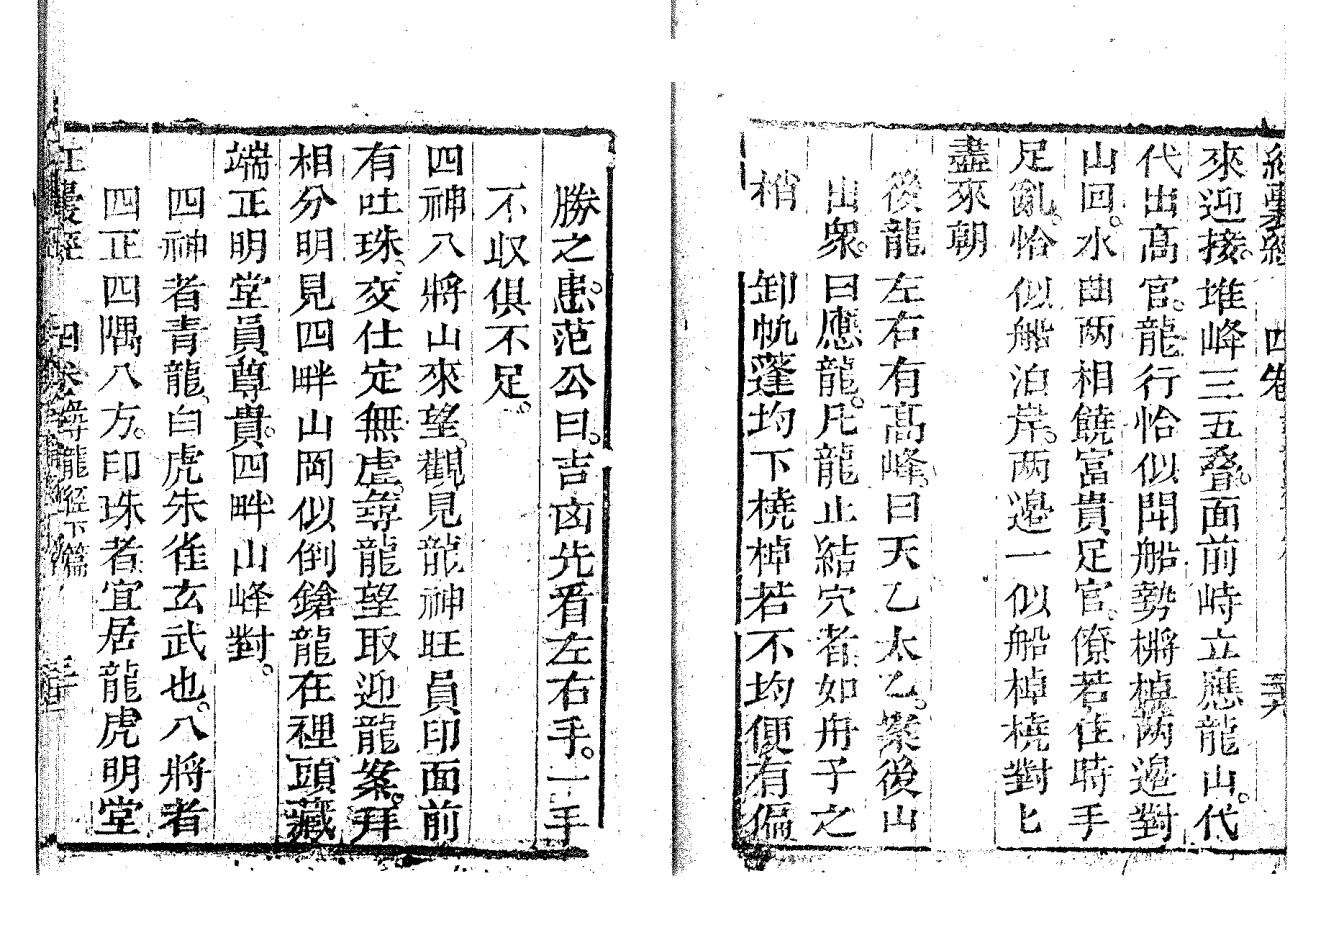 來迎接。堆峰三五叠。面前峙立應龍山。代
代出高官。龍行恰似開船勢。槳棹两邉對
山回。水曲两相饒富貴足官。僚若住時手
足亂。恰似船泊岸。两邉一似船棹橈對匕
盡來朝
後龍左右有高峰。曰天乙太乙。案後山
出衆。曰應龍。凡龍止結穴者。如舟子之
梢卸帆蓬均下橈棹若不均便有偏
勝之患。范公曰。吉凶先看左右手。一手
不収俱不足。
四神八將山來望。觀見龍神旺員印面前
有吐珠。交仕定無虚。尋龍望取迎龍案。拜
相分明見四畔山岡似倒鎗龍在裡頭藏
端正明堂員尊貴。四畔山峰對。
四神者青龍、白虎朱雀玄武也。八將者
四正四隅八方。印珠者宜居龍虎明堂
四卷 尋龍经下篇